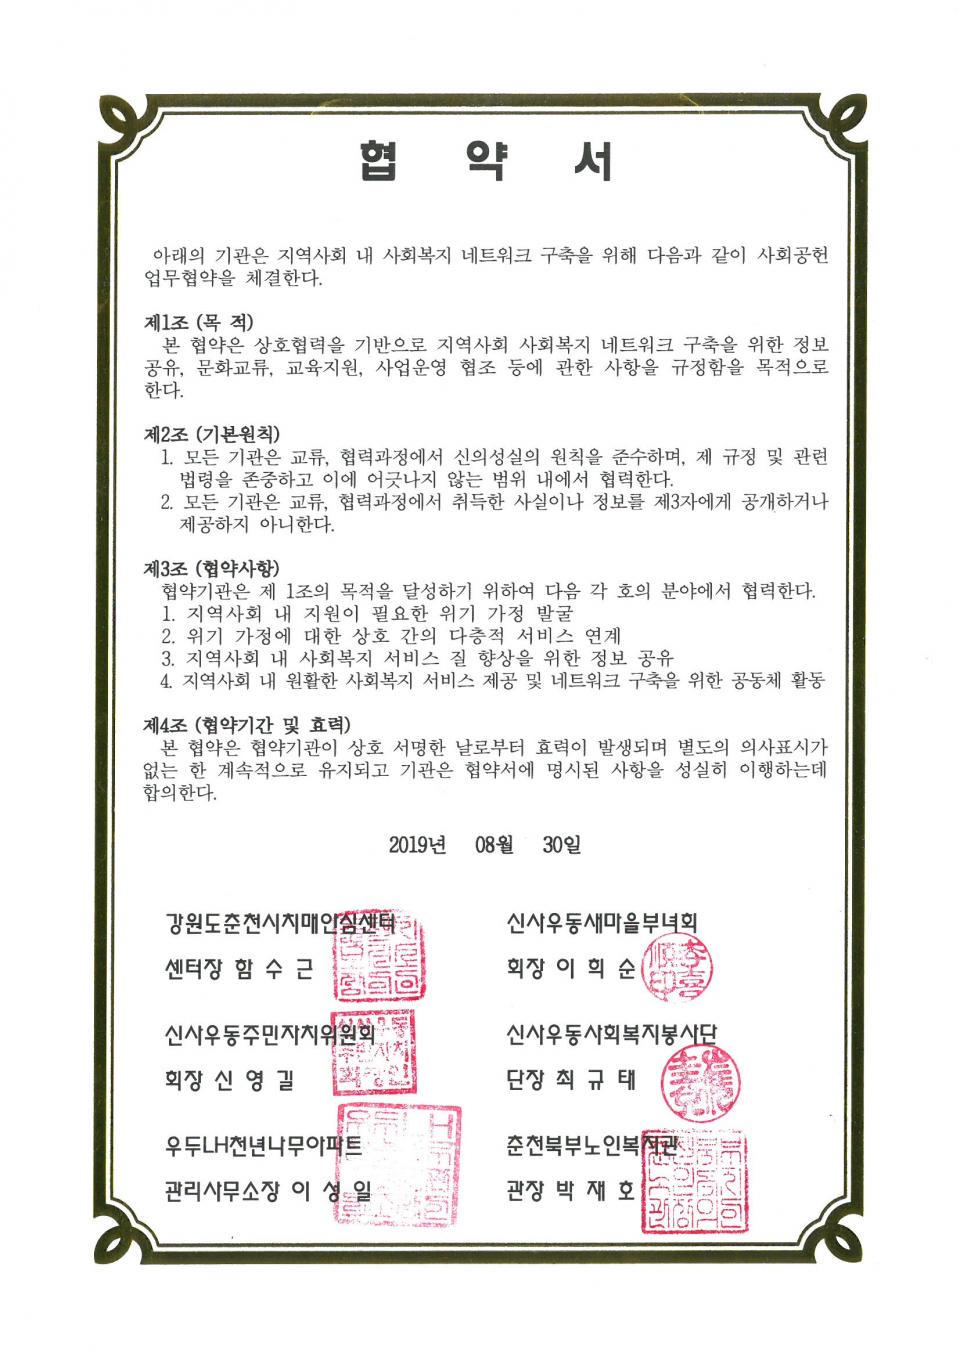 협 약 서
아래의 기관은 지역사회 내 사회복지 네트워크 구축을 위해 다음과 같이 사회공헌
업무협약을 체결한다.
제1조 (목 적)
본 협약은 상호협력을 기반으로 지역사회 사회복지 네트워크 구축을 위한 정보
공유, 문화교류, 교육지원, 사업운영 협조 등에 관한 사항을 규정함을 목적으로
한다.
제2조 (기본원칙)
1. 모든 기관은 교류, 협력과정에서 신의성실의 원칙을 준수하며, 제 규정 및 관련
법령을 존중하고 이에 어긋나지 않는 범위 내에서 협력한다.
2. 모든 기관은 교류, 협력과정에서 취득한 사실이나 정보를 제3자에게 공개하거나
제공하지 아니한다.
제3조 (협약사항)
협약기관은 제 1조의 목적을 달성하기 위하여 다음 각 호의 분야에서 협력한다.
1. 지역사회 내 지원이 필요한 위기 가정 발굴
2. 위기 가정에 대한 상호 간의 다층적 서비스 연계
3. 지역사회 내 사회복지 서비스 질 향상을 위한 정보 공유
4. 지역사회 내 원활한 사회복지 서비스 제공 및 네트워크 구축을 위한 공동체 활동
제4조 (협약기간 및 효력)
본 협약은 협약기관이 상호 서명한 날로부터 효력이 발생되며 별도의 의사표시가
없는 한 계속적으로 유지되고 기관은 협약서에 명시된 사항을 성실히 이행하는데
합의한다.
2019년 08월 30일
강원도춘천시치매안심센터
센터장 함 수 근
신사우동새마을부녀회
회장 이 희 순
신사우동주민자치위원회
회장 신 영 길
신사우동사회복지봉사단
단장 최 규 태
우두LH천년나무아파트
관리사무소장 이 성 일
춘천북부노인복지관
관장 박 재 호